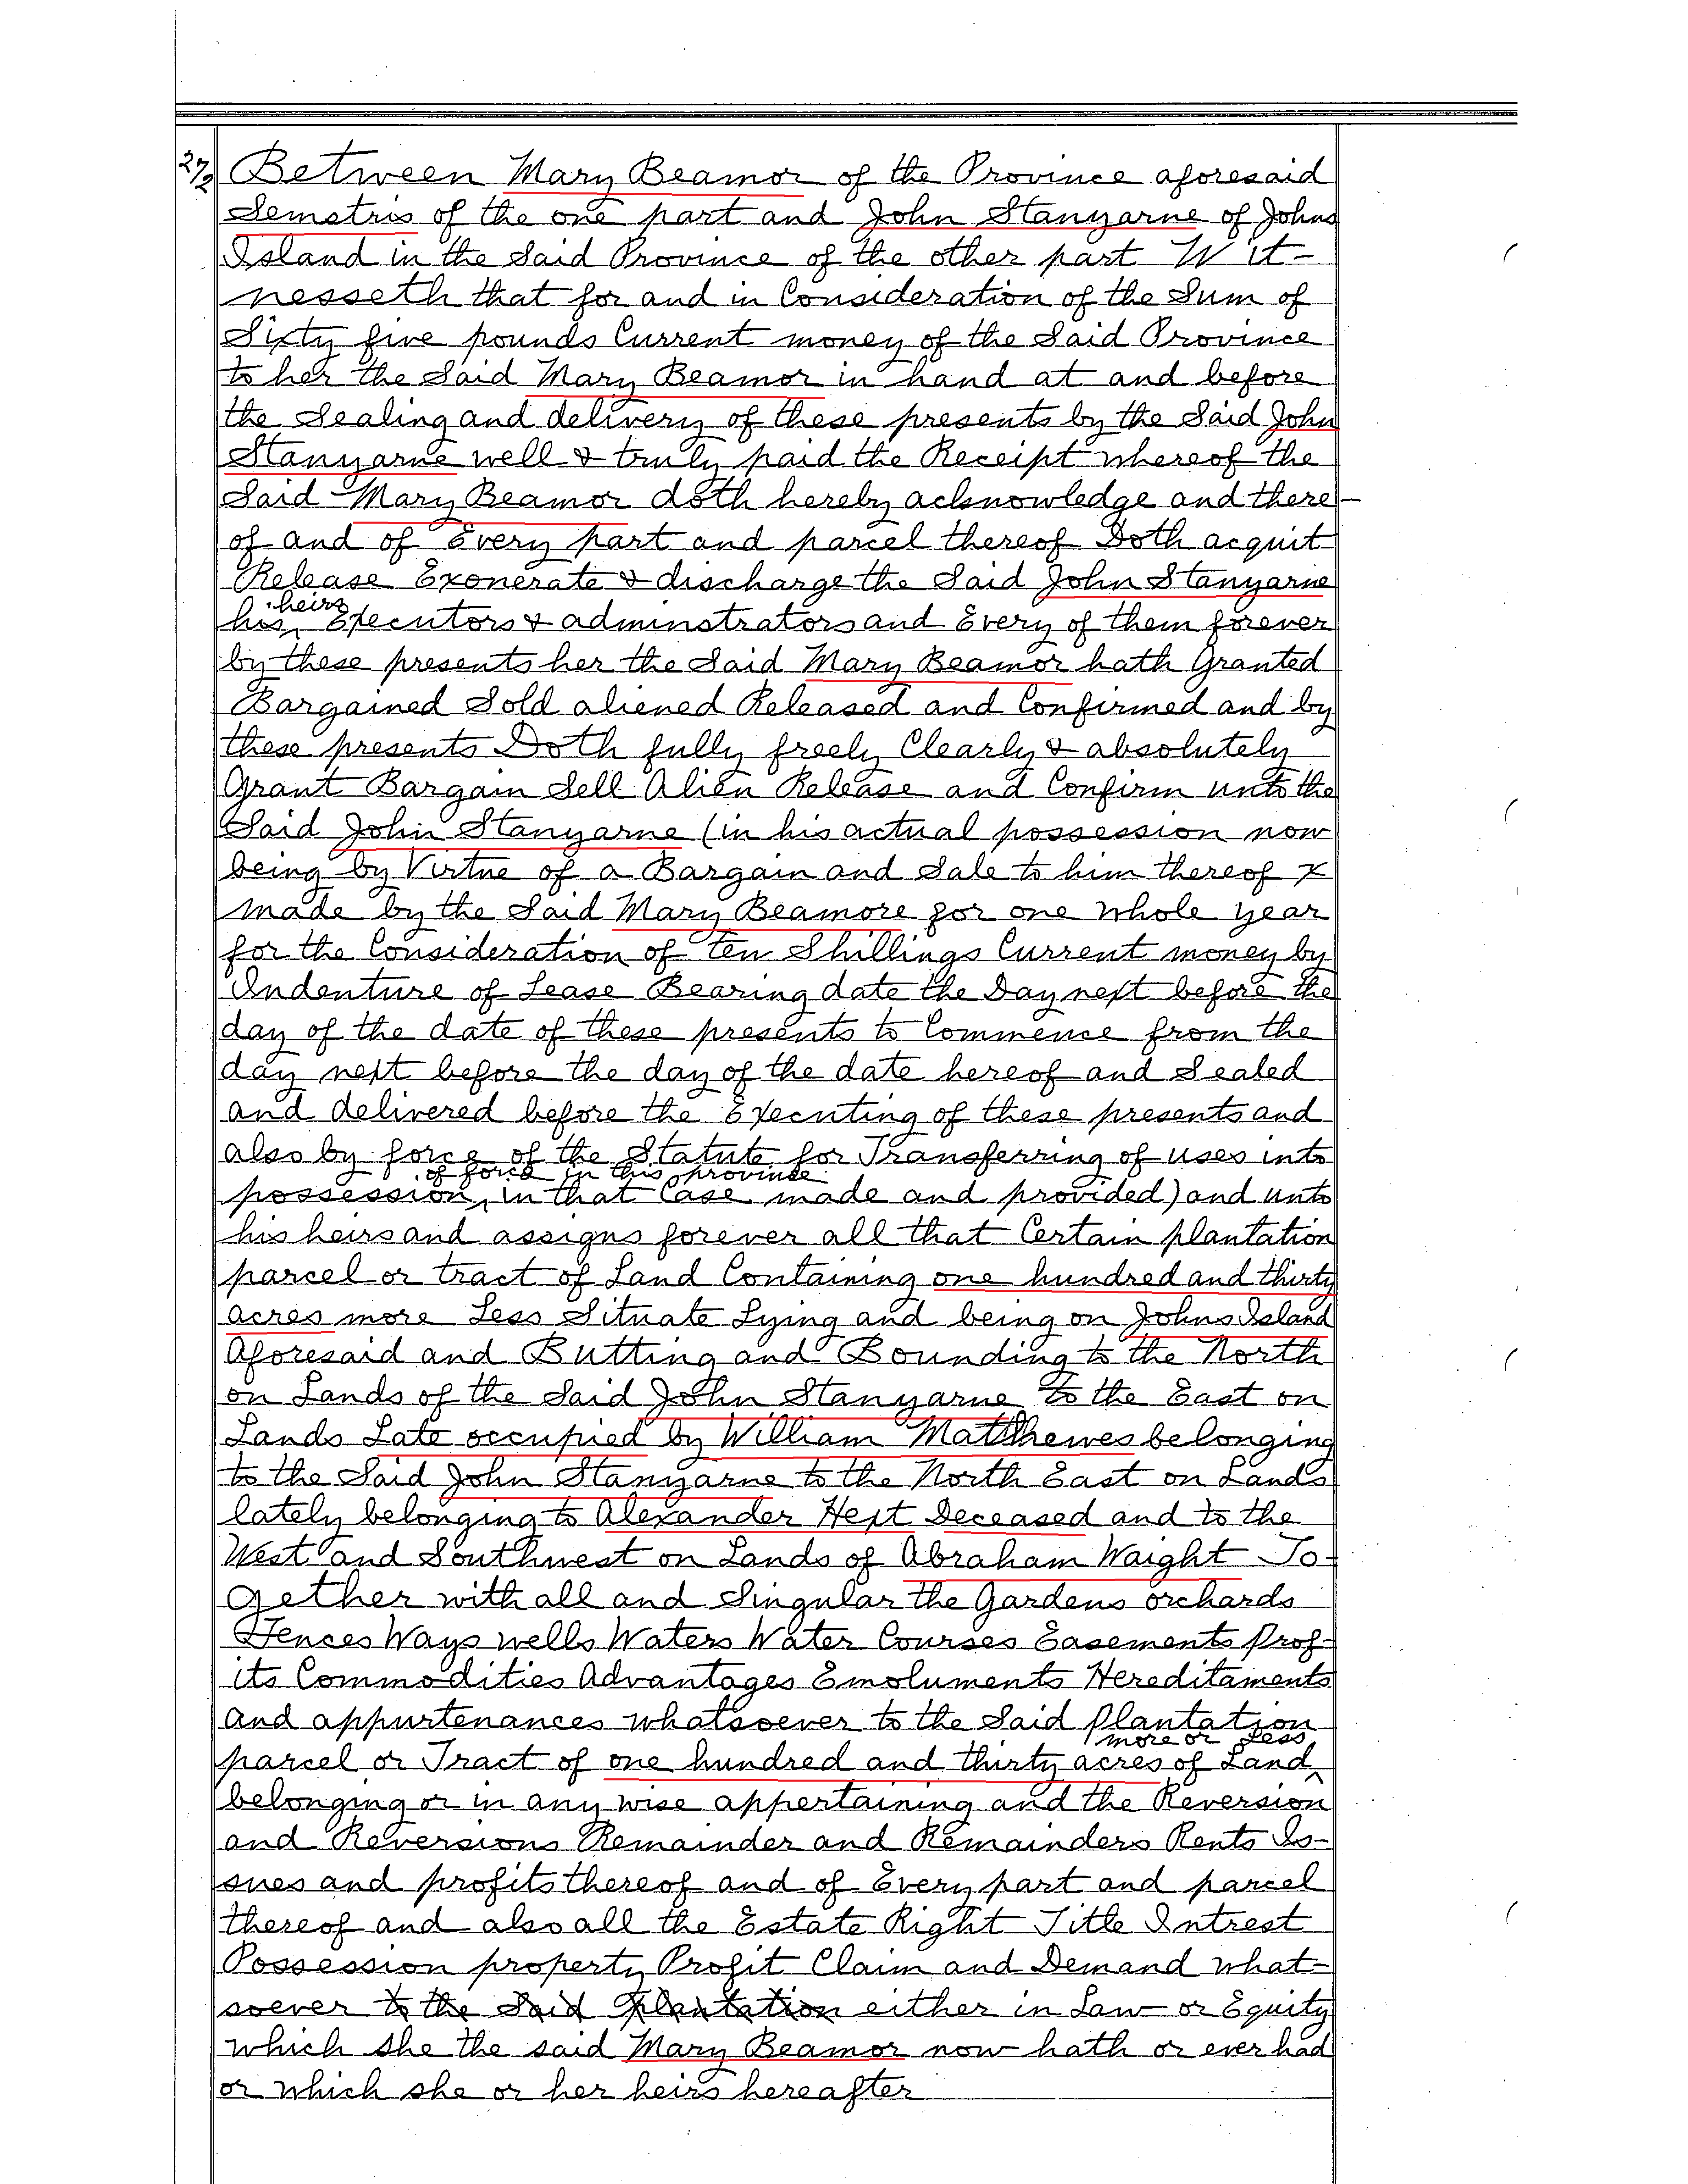 27/2 Between Mary Beamor of the Province aforesaid
Semstris of the one part and John Stanyarne of Johns
Island in the Said Province of the other part Wit-
nesseth that for and in Consideration of the Sum of
Sixty five pounds Current money of the Said Province
to her the Said Mary Beamor in hand at and before
the Sealing and delivery of these presents by the Said John
Stanyarne well & truly paid the Receipt whereof the
Said Mary Beamor doth hereby acknowledge and there-
of and of Every part and parcel thereof Doth acquit
Release Exonerate & discharge the Said John Stanyarne
heirs
his Executors & adminstrators and Every of them forever
by these presents her the Said Mary Beamor hath Granted
Bargained Sold aliened Released and Confirmed and by
these presents Doth fully freely Clearly & absolutely
Grant Bargain Sell Alien Release and Confirm unto the
Said John Stanyarne (in his actual possession now
being by Virtue of a Bargain and Sale to him thereof x
made by the Said Mary Beamore for one whole year
for the Consideration of Ten Shillings Current money by
Indenture of Lease Bearing date the Day next before the
day of the date of these presents to Commence from the
day next before the day of the date hereof and Sealed
and delivered before the Executing of these presents and
also by force of the Statute for Transferring of uses into
of force in this province
possession, in that Case made and provided) and unto
his heirs and assigns forever all that Certain plantation
parcel or tract of Land Containing one hundred and thirty
acres more Less Situate Lying and being on Johns Island
Aforesaid and Butting and Bounding to the North
on Lands of the Said John Stanyarne to the East on
Lands Late occupied by William Matthewes belonging
to the Said John Stanyarne to the North East on Lands
lately belonging to Alexander Hext Deceased and to the
West and Southwest on Lands of Abraham Waight To-
gether with all and Singular the Gardens orchards
Fences Ways wells Waters Water Courses Easements Prof-
its Commodities Advantages Emoluments Hereditaments
and appurtenances whatsoever to the Said Plantation
more or Less
parcel or Tract of one hundred and thirty acres of Land
belonging or in any wise appertaining and the Reversion
and Reversions Remainder and Remainders Rents Is-
sues and profits thereof and of Every part and parcel
thereof and also all the Estate Right Title Intrest
Possession property Profit Claim and Demand what-
soever to the Said Plantation either in Law or Equity
which she the said Mary Beamor now hath or ever had
or which she or her heirs hereafter